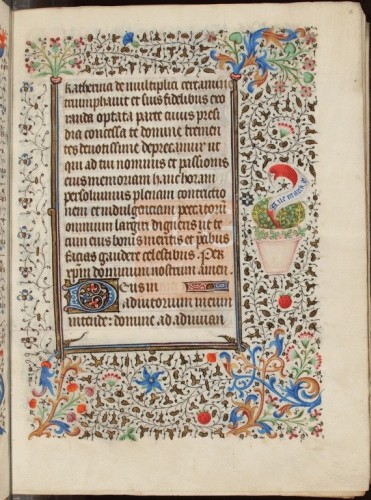 katherina de multiplici certamine
triumphavit et suis fidelibus exo
randa optata parte cuius presi
dia concessa te domine tremen
tes devotissime deprecamur ut
qui ad tui nominis et passionis
eius memoriam hanc horam
persolvimus plenam contrictio
nem et indulgenciam peccatorum
omnium largiri digneris ut te
cum eius bonis meritis et precibus
facias gaudere celestibus. Per
xpm dominum nostrum amen.
Deus in
adiutorium meum
intende: domine ad adiuvan